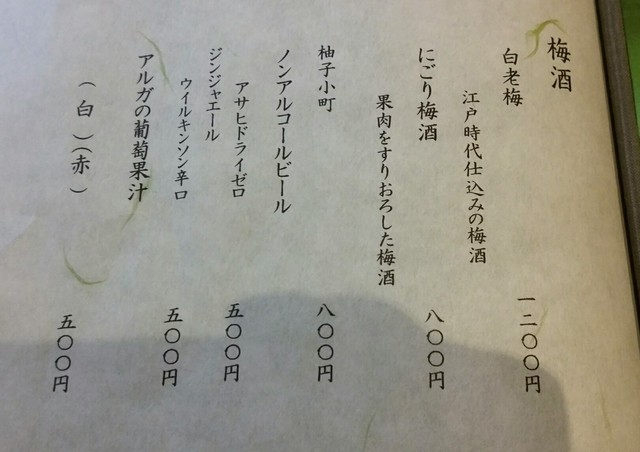 梅酒
白老梅
江戸時代仕込みの梅酒
一二〇〇円
にごり梅酒
果肉をすりおろした梅酒
八〇〇円
柚子小町
八〇〇円
ノンアルコールビール
アサヒドライゼロ
五〇〇円
ジンジャエール
ウイルキンソン辛口
五〇〇円
アルガの葡萄果汁
（白）（赤）
五〇〇円